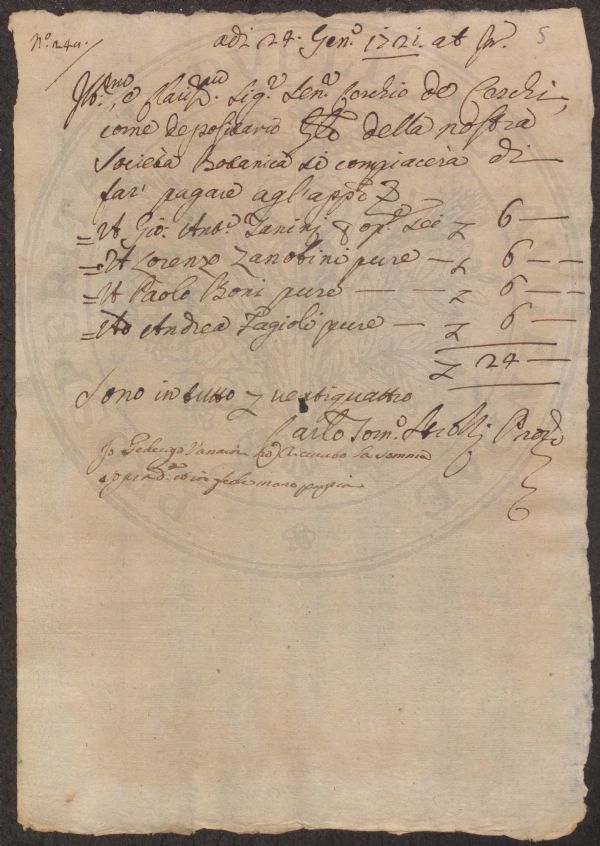 adi 24. Gen.o 1721. ab In.
5
Ill.mo, e Clariss.mo Sig.r Sen.r Cerchio de Cerchi,
come depositario della nostra
Società Botanica si compiacerà di
far' pagare agl'app.o
= A Gio: Ant.o Tanini p op.e sei 6 —
= A Lorenzo Zanobini pure — 6 — —
= A Paolo Boni pure — — 6 — —
= A Andrea Fagioli pure — 6 —
24 —
Sono in tutto ventiquattro
Carlo Tom.o Strozzi
Io ho ricevuto la somma
in fede mano propria